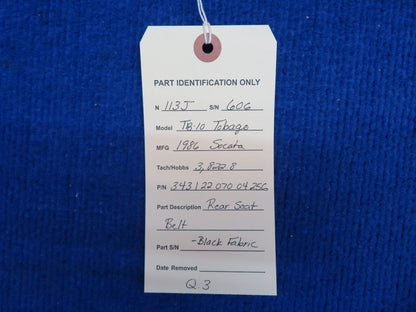 PART IDENTIFICATION ONLY
N 113J S/N 606
Model TB-10 Tobago
MFG 1986 Socata
Tach/Hobbs 3,822.8
P/N 343122 070 04256
Part Description Rear Seat
Belt
Part S/N -Black Fabric
Date Removed
Q.3